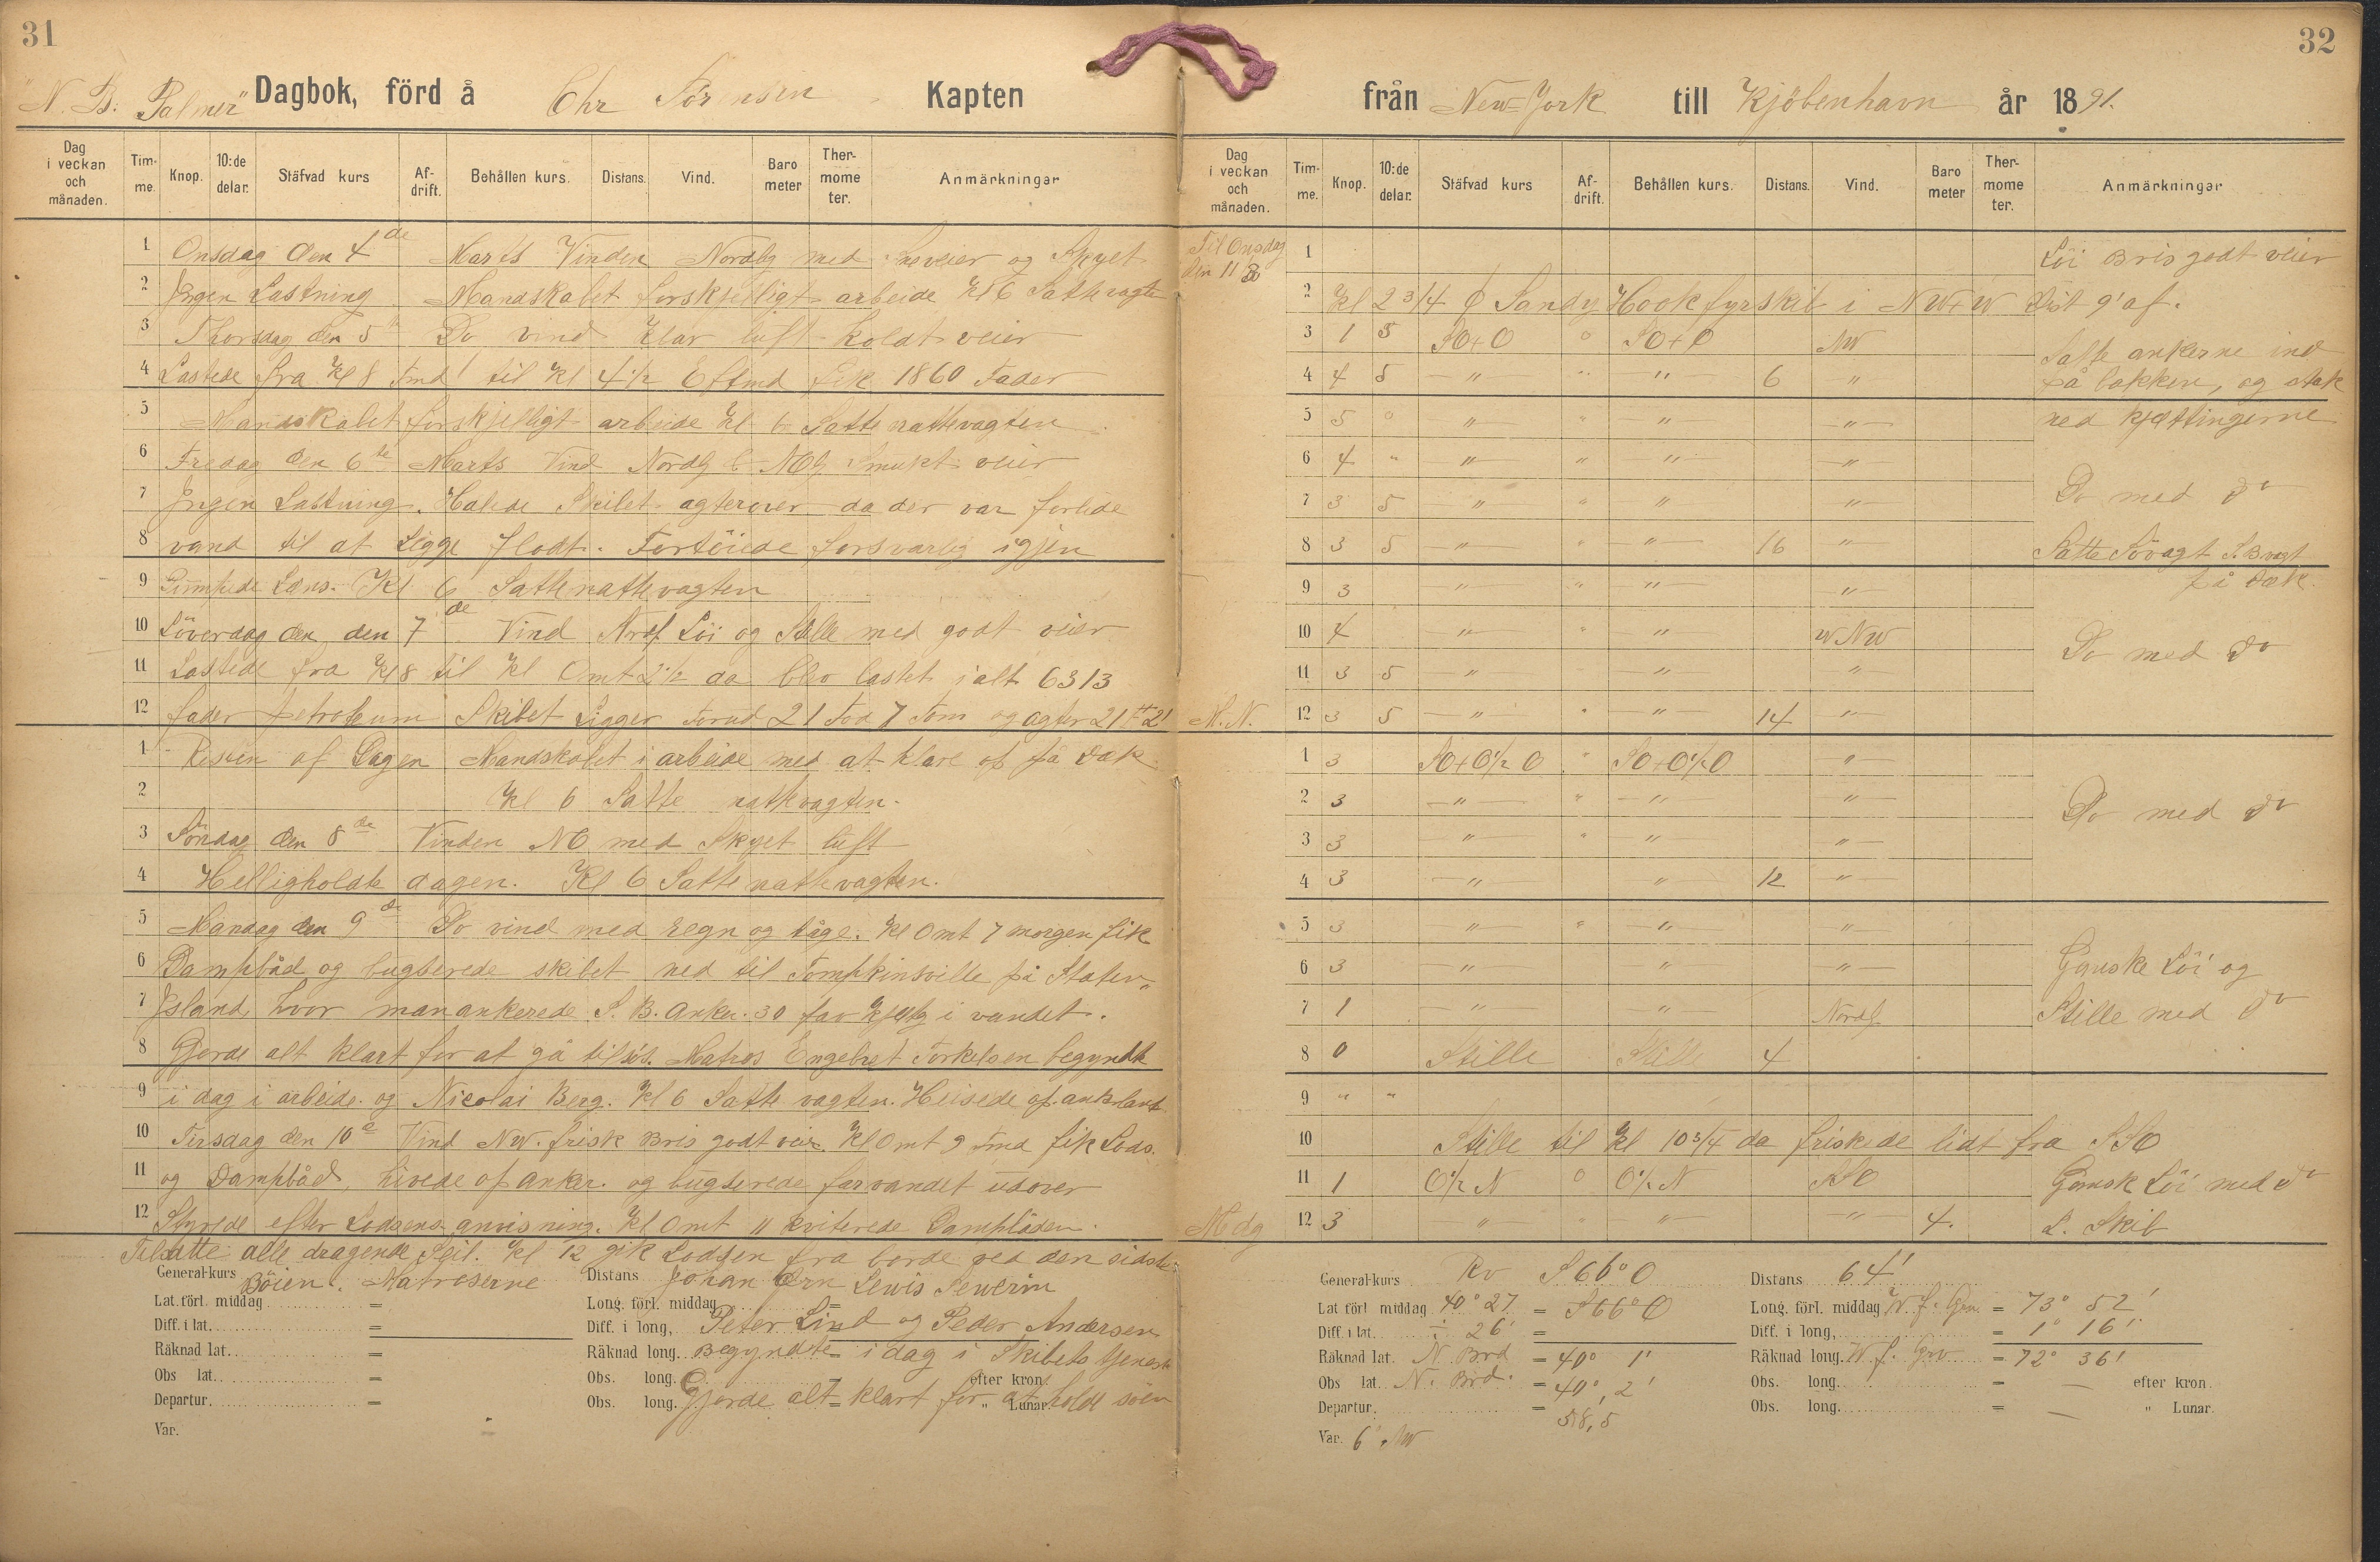 31
"N. B. Palmer" Dagbok, förd å Chr Sörensen Kapten
Dag i veckan och månaden. Tim-me. Knop. 10:de delar. Stäfvad kurs Af-drift. Behållen kurs. Distans. Vind. Baro meter Ther-mome ter. Anmärkningar
1 Onsdag den 4de Marts Vinden Nordlg med Sneveier og Skyet
2 Jngen Lastning. Mandskabet forskjelligt arbeide kl 6 Satte vagten
3 Thorsdag den 5te Do vind klar luft koldt veier
4 Lastede fra kl 8 Fmd til kl 4 1/2 Eftmd fik 1860 Fader
5 Mandskabet forskjelligt arbeide kl 6 Satte nattevagten
6 Fredag den 6te Marts Vind Nordlg & NOlg Smukt veier
7 Jngen Lastning. Halede Skibet agterover da der var forlide
8 vand til at Ligge flodt. Fortöiede forsvarlig igjen
9 Pumpede Læns. Kl 6 Satte nattevagten
10 Löverdag den den 7de Vind Nrdl Löi og Stille med godt veier
11 Lastede fra kl 8 til kl Omt 2 1/2 da blev lastet ialt 6313
12 fader petroleum Skibet Ligger Forud 21 Fod 7 Tom og agter 21 Ft 2'
1 Resten af Dagen Mandskabet i arbeide med at klare op på Dæk
2 kl 6 Satte nattevagten.
3 Söndag den 8de Vinden NO med Skyet luft
4 Helligholdte dagen. Kl 6 Satte nattevagten.
5 Mandag den 9de Do vind med regn og tåge. kl Omt 7 morgen fik
6 Dampbåd og bugserede skibet ned til Tompkinsville på Staten
7 Jsland, hvor man ankerede S. B. Anker. 30 fav kjettg i vandet.
8 Gjorde alt klart for at gå tilsös. Matros Engebret Torkelsen begyndte
9 i dag i arbeide og Nicolai Berg. kl 6 Satte vagten. Heisede op
10 Tirsdag den 10de Vind NW. frisk Bris godt veir. kl Omt 9 Fmd fik Lods.
11 og Dampbåd, hivede op anker. og bugserede farvandet udover
12 Styrede efter Lodsens anvisning. kl Omt 11 kviterede Dampbåden.
Tilsatte alle dragende Seil. kl 12 gik Lodsen fra borde ved den sidste
General-kurs Böien. Matroserne Distans Johan Lewis Sewerin
Lat. förl. middag = Long. förl. middag =
Diff. i lat. = Diff. i long, Peter Lind og Peder Andersen
Räknad lat. = Räknad long. Begyndte i dag i Skibets tjeneste
Obs lat. = Obs. long. = efter kron.
Departur. = Obs. long. Gjorde alt klart for at holde söen " Lunar.
Var.
32
från New-York till Kjöbenhavn år 1891.
Dag i veckan och månaden. Tim-me. Knop. 10:de delar. Stäfvad kurs Af-drift. Behållen kurs. Distans. Vind. Baro meter Ther-mome ter. Anmärkningar
Til Onsdag den 11
1 Löi Bris godt veier
2 Kl 2 3/4 Sandy Hook fyrskib i NWtW Dist 9' af.
3 1 5 SOtO 0 SOtO NW Satte ankerne ind
4 4 5 " " " 6 " på bakken, og stak
5 5 0 " " " " ned kjættingerne
6 4 " " " " "
7 3 5 " " " " Do med Do
8 3 5 " " " 16 " Satte Sövagt S.B vagt
9 3 " " " " på Dæk.
10 4 " " " WNW Do med Do
11 3 5 " " "
M. N. 12 3 5 " " " 14 "
1 3 SOtO 1/2 O " SOtO 1/2 O "
2 3 " " " " Do med Do
3 3 " " " "
4 3 " " 12 "
5 3 " " " "
6 3 " " " Ganske Löi og
7 1 " " Nordl Stille med Do
8 0 Stille Stille 4
9 " "
10 Stille til kl 10 3/4 da friskede lidt fra SSO
11 1 O 1/2 N 0 O 1/2 N SSO Gansk Löi med Do
Mdg 12 3 " " " " 4. S. Skib
General-kurs Rv S 66° O Distans 64'
Lat förl middag 40° 27 = S 66° O Long. förl. middag W. f. Grw. = 73° 52'
Diff. i lat. ÷ 26' = Diff. i long, = 1° 16'
Räknad lat. N Brd = 40° 1' Räknad long. W f. Grw = 72° 36'
Obs lat. N. Brd. = 40°, 2' Obs. long. = — efter kron.
Departur. = 58,5 Obs. long. = — " Lunar.
Var. 6° NW